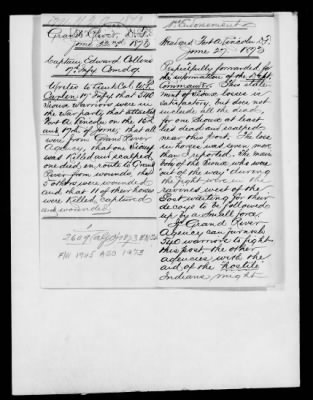 Grand River, D.T.
June 22nd 1873
Captain Edward Collins
17 Infy Comdg.
Writes to Lieut Col. W.P.
Carlin 17 Infy that 340
Sioux warriors were in
the war party that attacked
Fort A. Lincoln on the 15th
and 17th of June; that all
were from Grand River
Agency, that one Sioux
was killed and scalped,
one died en route to Grand
River from wounds, that
5 others were wounded
and that 11 of their horses
were killed, captured
and wounded.
1st Endorsement
Headqrs Fort A. Lincoln D.T.
June 27. 1873
Respectfully forwarded for
the information of the Dept.
Commander. This state-
ment of Sioux losses is
satisfactory, but does not
include all the dead,
for one Sioux at least
lies dead and scalped
near this Post. The loss
in horses was even more
than reported. The main
body of the Sioux, who were
out of the way during
the fight were in the
ravines west of the
Post waiting for their
decoys to be followed
up by a small force.
If Grand River
Agency can furnish
340 warriors to fight
this post the other
agencies with the
aid of the hostile
Indians, might